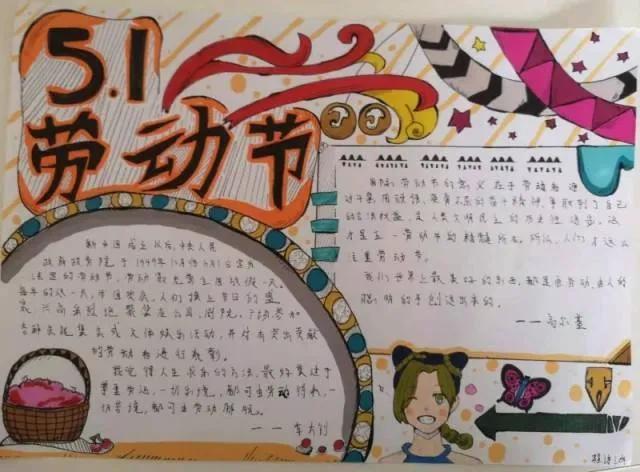 5.1
劳动节
J J
新中国成立以后,中央人民
政府政务院于1949年12月
法定的劳动节,劳动
每年的这一天,
人们换上节日的盛
装,兴高采烈地聚集在公园、剧院、广场,参加
各种庆祝集会或文体娱乐活动,并对有突出贡献
的劳动者进行
我觉得人生求乐的方法,最好莫过于
尊重劳动,一切乐境,都可由劳动得来,一
切苦境,都可由劳动解脱。
——李大钊
国际劳动节的意义在于劳动者通
过斗争,用顽强、英勇不屈的奋斗精神,争取到了自己
的合法权益,是人类文明民主的历史性进步,这
才是五一劳动节的精髓所在。所以,人们才这么
注重劳动节。
我们世界上最美好的东西,都是由劳动、由人的
聪明的手创造出来的。
——高尔基